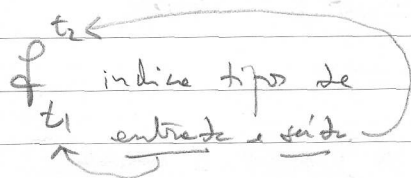 t2
f indica tipos de
t1 entrada e saída